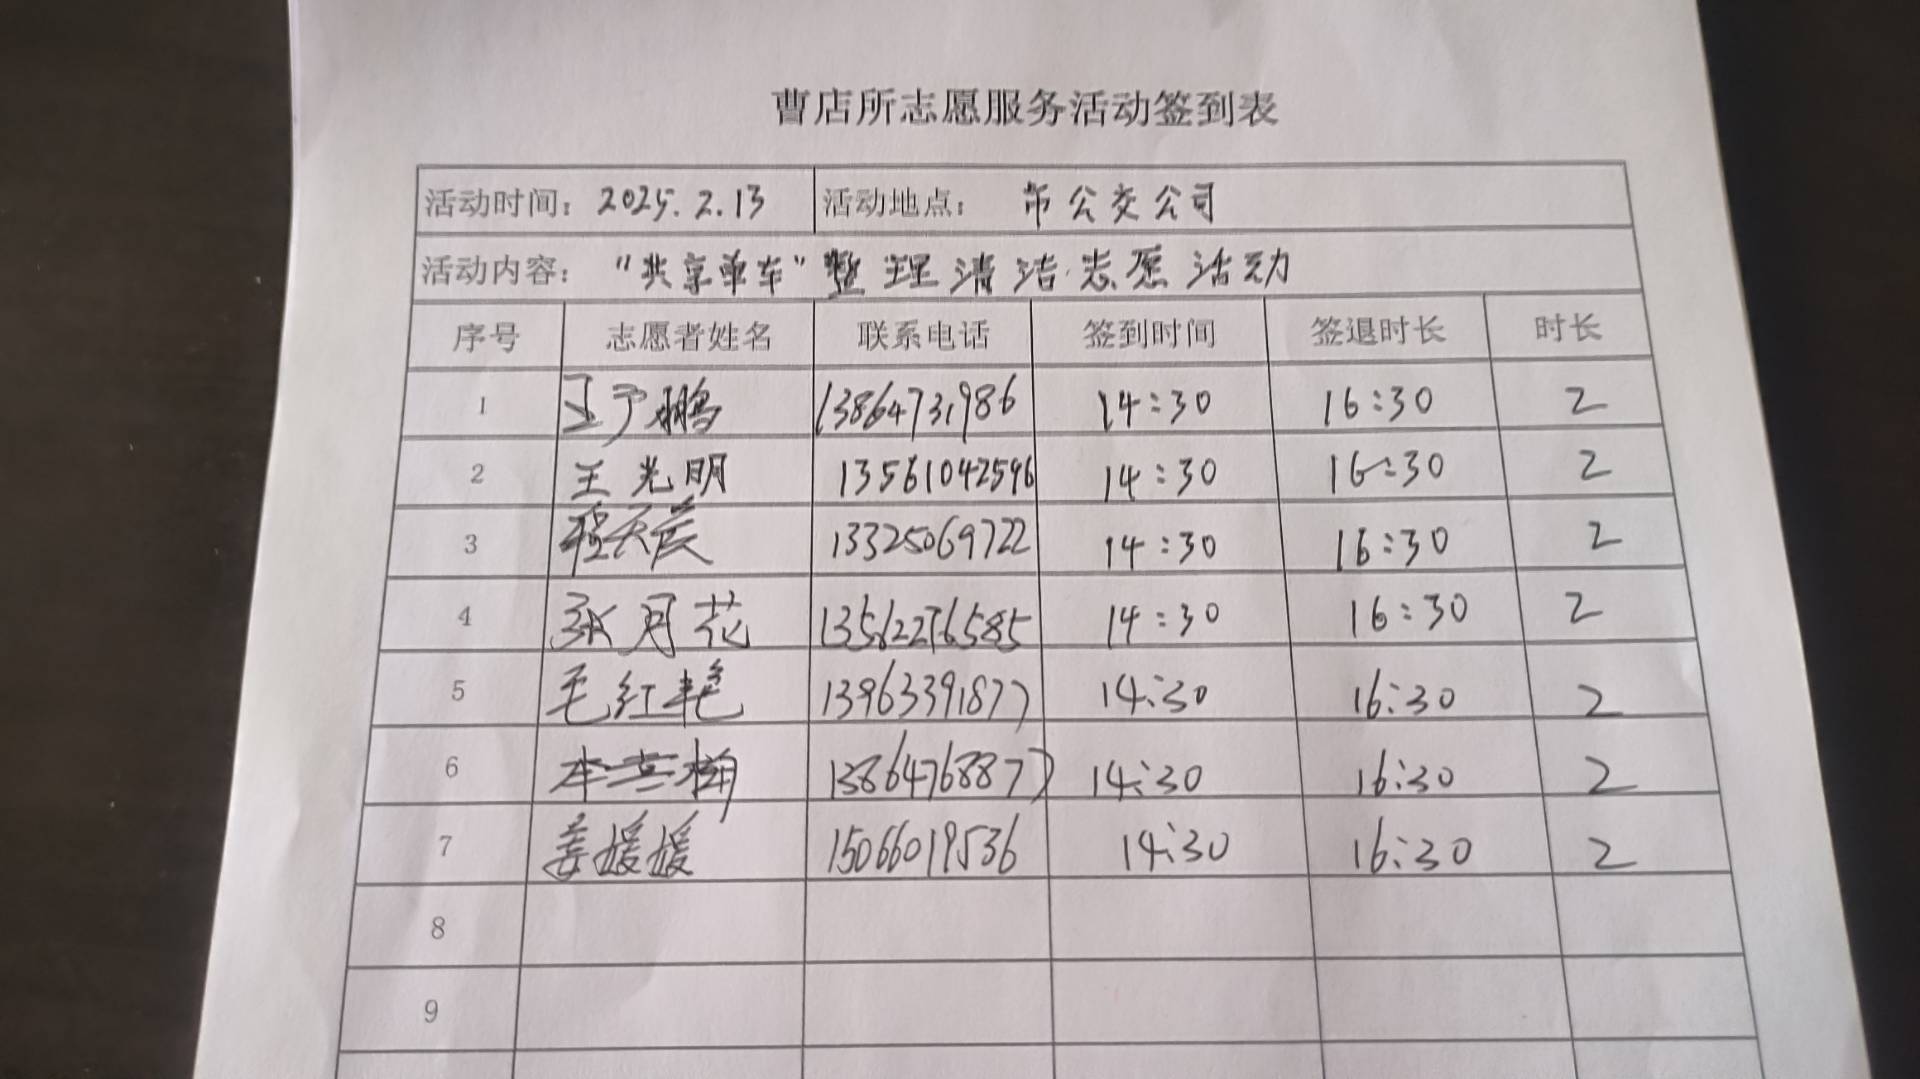 曹店所志愿服务活动签到表
活动时间：2025.2.13 活动地点： 市公交公司
活动内容： "共享单车"整理清洁志愿活动
序号 志愿者姓名 联系电话 签到时间 签退时长 时长
1 王于鹏 13864731986 14:30 16:30 2
2 王光明 13561042596 14:30 16:30 2
3 程天晨 13325069722 14:30 16:30 2
4 张月花 13562276585 14:30 16:30 2
5 毛红艳 13963391877 14:30 16:30 2
6 13864768877 14:30 16:30 2
7 姜媛媛 15066019536 14:30 16:30 2
8
9